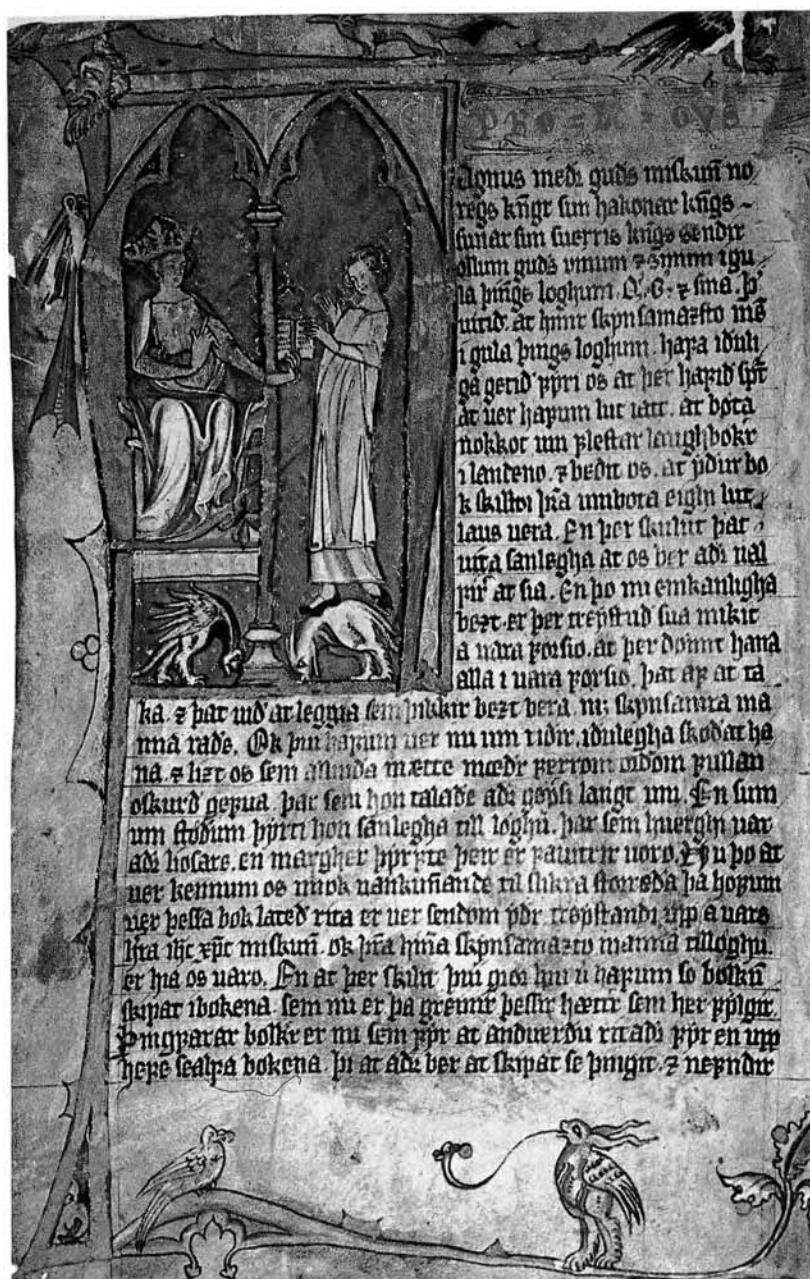 PRO-L-OVS
agnus medr guds miskun no
regs kngr sun hakonar kngs
sunar sun suerris kngs sendir
ollum guds uinum ⁊ sinum i gu
la þings loghum. Q. G. ⁊ sina. þ'
uitið at hinir skynsamazsto mē
i gula þings loghum. hafa iðuli
ga getið fyri os at þer hafið spt
at uer hafum lut iatt. at bøta
nokkot um flestar laughbokr
i landeno. ⁊ beðit os. at yður bo
k skilldi hra umbota eighi lut
laus uera. En þer skulut þat
uita sanlegha at os ber adr ual
fir at sia. En þo nu einkanligha
bezt er þer treystuð sua mikit
a uara forsio. at þer domit hana
alla i uara forsio. þat af at ta
ka. ⁊ þat uið at leggia sem þikkir bezt uera. nr skynsamra ma
nna raðe. Ok þui hafum uer nu um riðir. iðulegha skoðat ha
na. ⁊ lizt os sem asynda mætte mœðr ferrom orðom fullan
oskurð gefua. þar sem hon talaðe adr gøysi langt um. En sum
um stoðum þyrfti hon sanlegha till loghu. þar sem huerghi uar
adr liosare. en margher þyrfte þeir er fauitrir uoro. Nu þo at
uer kennum os miok uankunnande til slikra storreða þa hofum
uer þessa bok lateð rita er uer sendom yðr treystandi upp a uars
hra ihc xpc miskun. ok hra hina skynsamazto manna tilloghu.
er hia os uaro. En at þer skilit þui giør hui u hafum so bolku
skipat i bokena. sem nu er þa greinir þessir hættir sem her fylgir.
Þingfarar bolkr er nu sem fyr at anduerðu ritaðr fyr en upp
hefe sealfa bokena. þi at adr ber at skipat se þingit. ⁊ nefndir